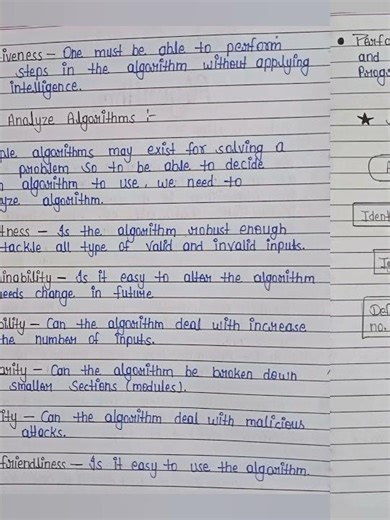 iveness – One must be able to perform
steps in the algorithm without applying
intelligence.
Analyze Algorithms :-
ple algorithms may exist for solving a
problem so to be able to decide
algorithm to use, we need to
yze algorithm.
tness – Is the algorithm robust enough
tackle all type of valid and invalid inputs.
inability – Is it easy to alter the algorithm
needs change in future
bility – Can the algorithm deal with increase
the number of inputs.
arity – Can the algorithm be broken down
smaller sections (modules).
ity – Can the algorithm deal with malicious
attacks.
friendliness – Is it easy to use the algorithm.
• Perfo
and
Progs
★
Ident
I
Def
no.